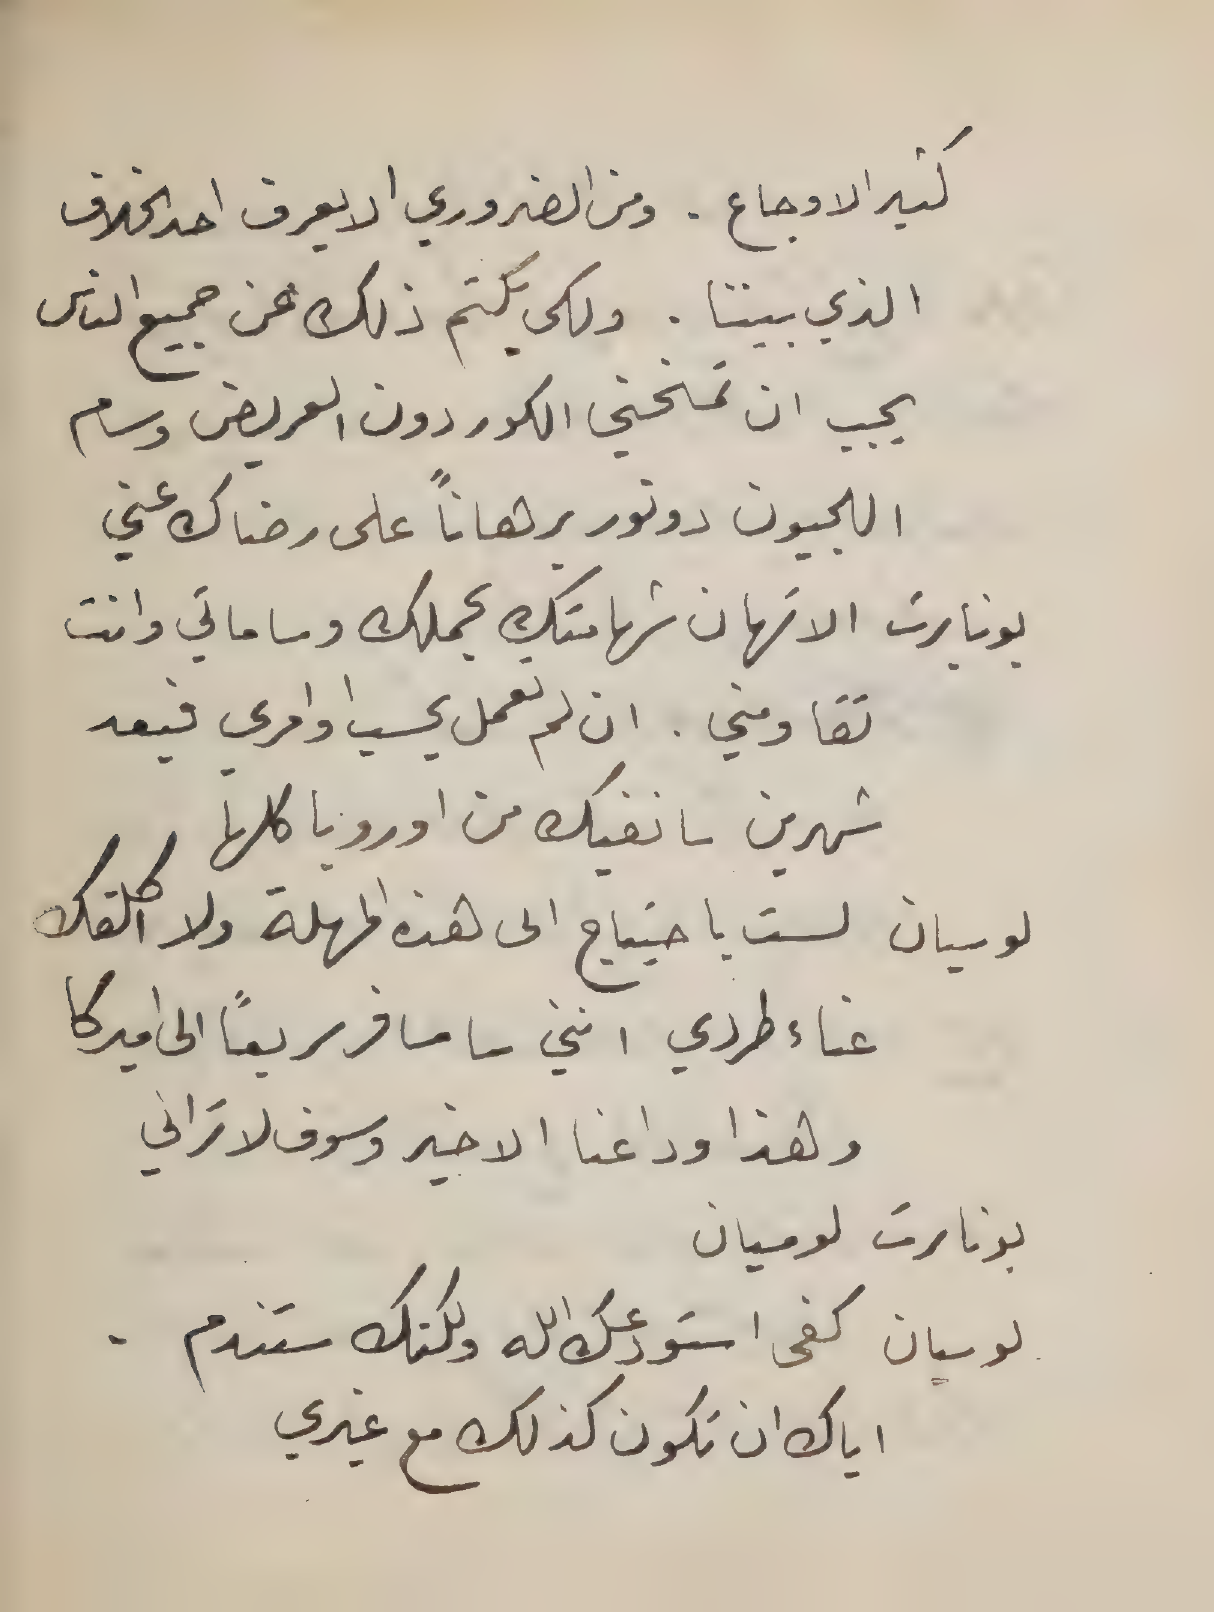 كثير الاوجاع . ومن الضروري الا يعرف احد الخلاف
الذي بيننا . ولكي يكتم ذلك عن جميع الناس
يجب ان تمنحني الكوردون العريض وسام
اللجيون دونور برهاناً على رضاك عني
بونابرت الا تهان شهامتك بحملك وساماتي وانت
تقاومني . ان لم تعمل بحسب اوامري فبعد
شهرين سانفيك من اوروبا كلها
لوسيان لست باحتياج الى هذه المهلة ولا اكلفك
عناء طردي انني سا سافر سريعاً الى اميركا
وهذا وداعنا الاخير وسوف لا تراني
بونابرت لوسيان
لوسيان كفى استودعك الله ولكنك ستندم .
اياك ان تكون كذلك مع غيري